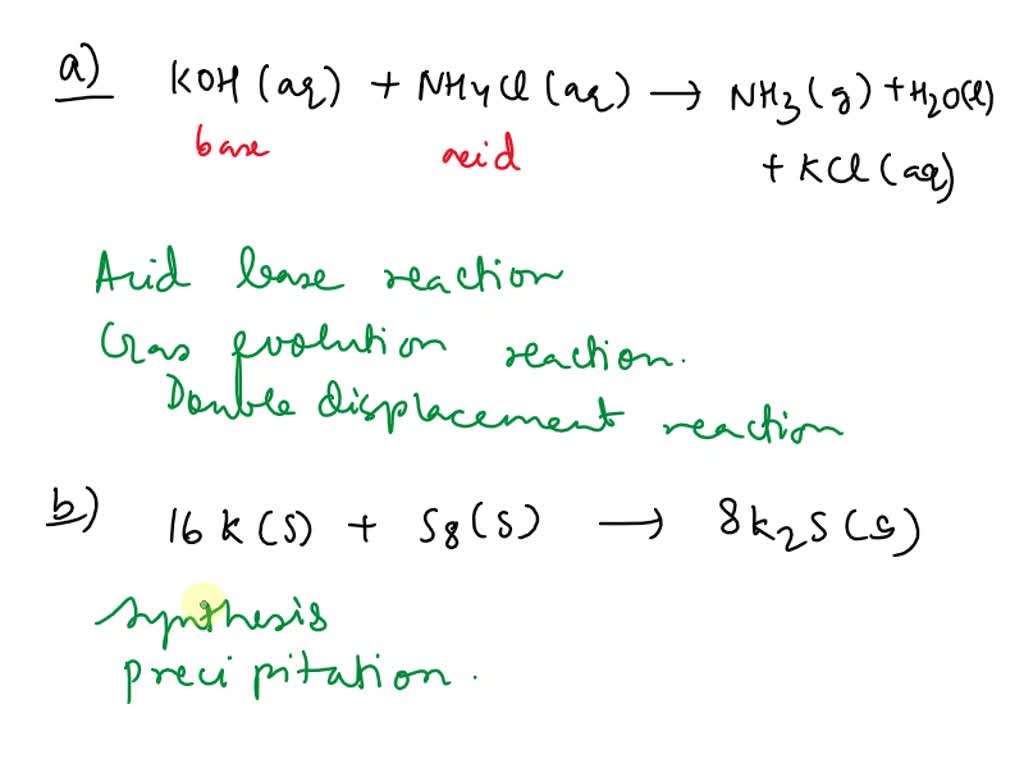 a) KOH (aq) + NH4Cl (aq) → NH3 (g) + H2O(l)
+ KCl (aq)
base acid
Acid base reaction
Gas evolution reaction.
Double displacement reaction
b) 16 K (s) + S8 (s) → 8K2S (s)
synthesis
precipitation.